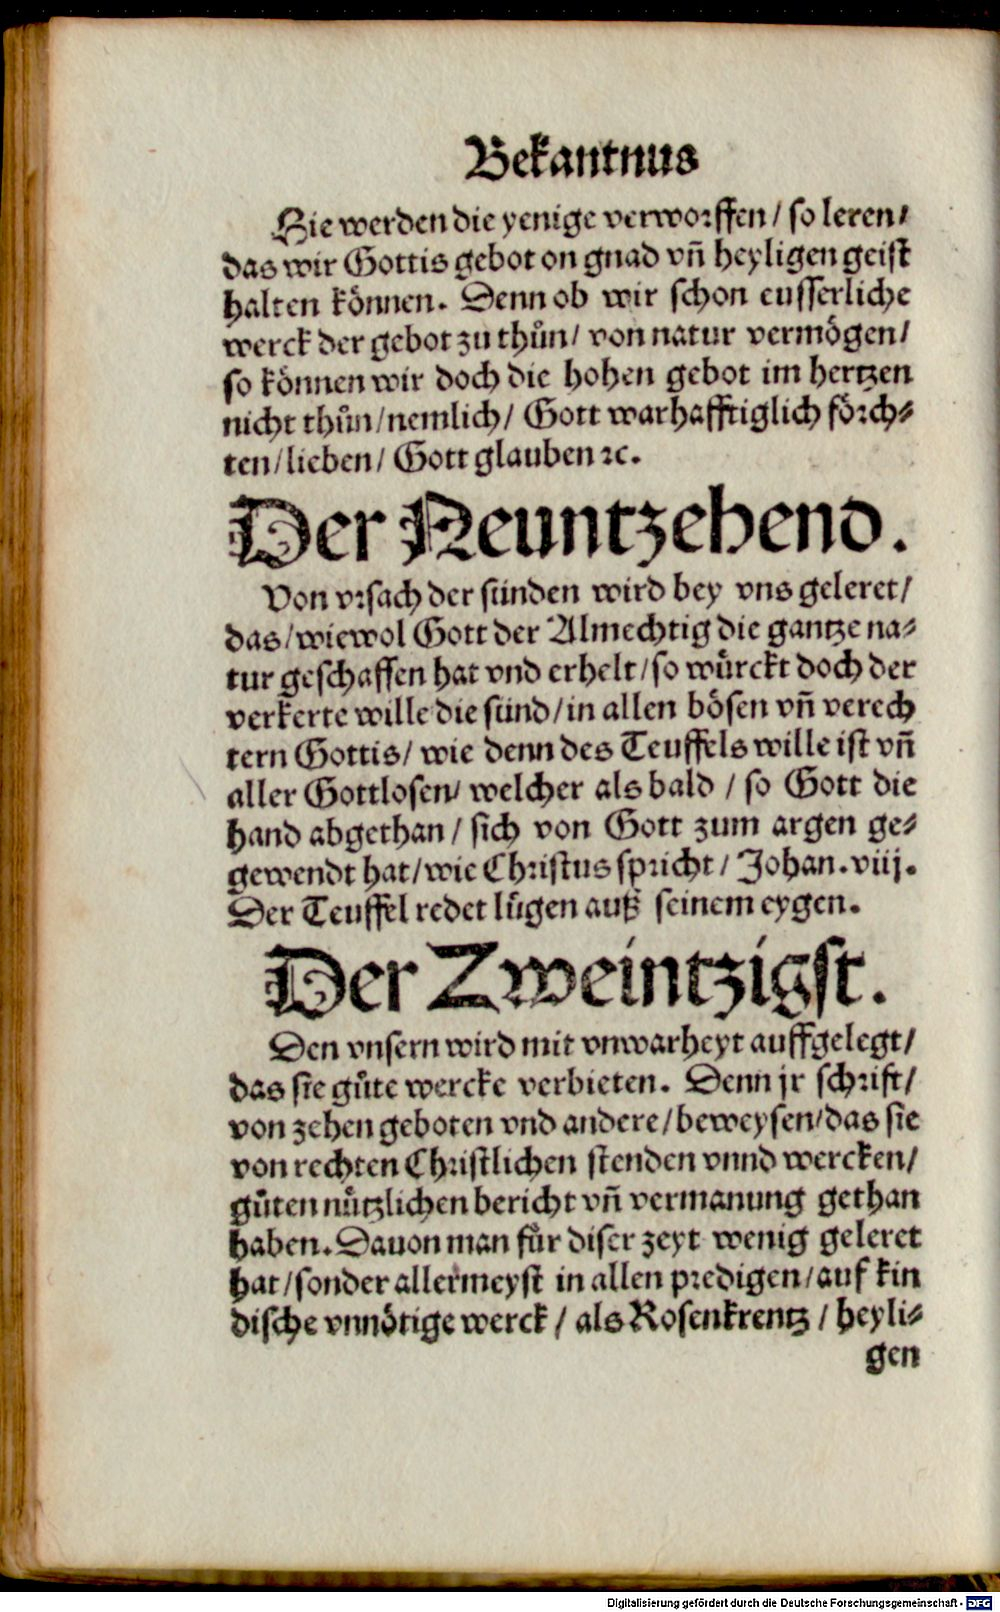 Bekantnus
Hie werden die yenige verworffen / so leren /
das wir Gottis gebot on gnad vñ heyligen geist
halten können. Denn ob wir schon eusserliche
werck der gebot zu thůn / von natur vermögen /
so können wir doch die hohen gebot im hertzen
nicht thůn / nemlich / Gott warhafftiglich förch⸗
ten / lieben / Gott glauben ꝛc.
Der Neuntzehend.
Von vrsach der sünden wird bey vns geleret /
das / wiewol Gott der Almechtig die gantze na⸗
tur geschaffen hat vnd erhelt / so würckt doch der
verkerte wille die sünd / in allen bösen vñ verech
tern Gottis / wie denn des Teuffels wille ist vñ
aller Gottlosen / welcher als bald / so Gott die
hand abgethan / sich von Gott zum argen ge⸗
gewendt hat / wie Christus spricht / Johan. viij.
Der Teuffel redet lügen auß seinem eygen.
Der Zweintzigst.
Den vnsern wird mit vnwarheyt auffgelegt /
das sie gůte wercke verbieten. Denn jr schrift /
von zehen geboten vnd andere / beweysen / das sie
von rechten Christlichen stenden vnnd wercken /
gůten nützlichen bericht vñ vermanung gethan
haben. Dauon man für diser zeyt wenig geleret
hat / sonder allermeyst in allen predigen / auf kin
dische vnnötige werck / als Rosenkrentz / heyli⸗
gen
Digitalisierung gefördert durch die Deutsche Forschungsgemeinschaft - DFG